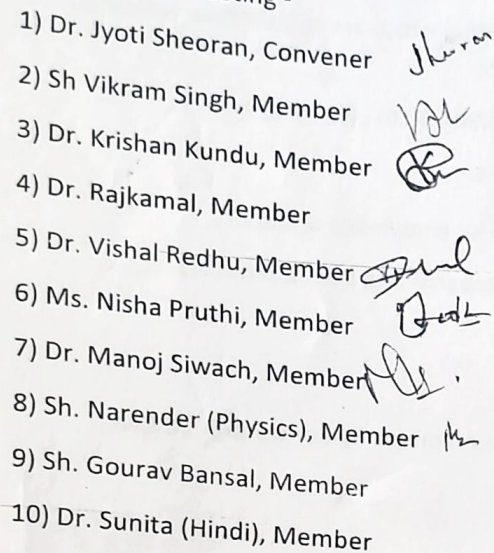 1) Dr. Jyoti Sheoran, Convener Sheoran
2) Sh Vikram Singh, Member
3) Dr. Krishan Kundu, Member
4) Dr. Rajkamal, Member
5) Dr. Vishal Redhu, Member
6) Ms. Nisha Pruthi, Member
7) Dr. Manoj Siwach, Member
8) Sh. Narender (Physics), Member
9) Sh. Gourav Bansal, Member
10) Dr. Sunita (Hindi), Member